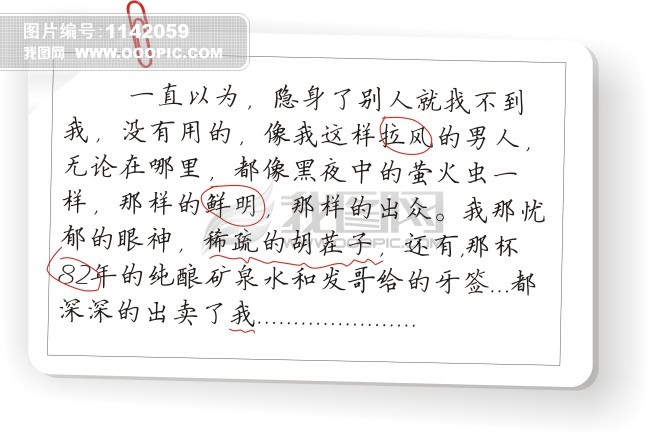 图片编号:1142059
我图网 WWW.OOOPIC.COM
一直以为，隐身了别人就找不到
我，没有用的，像我这样拉风的男人，
无论在哪里，都像黑夜中的萤火虫一
样，那样的鲜明，那样的出众。我那忧
郁的眼神，稀疏的胡茬子，还有,那杯
82年的纯酿矿泉水和发哥给的牙签...都
深深的出卖了我......................
我图网
WWW.OOOPIC.COM